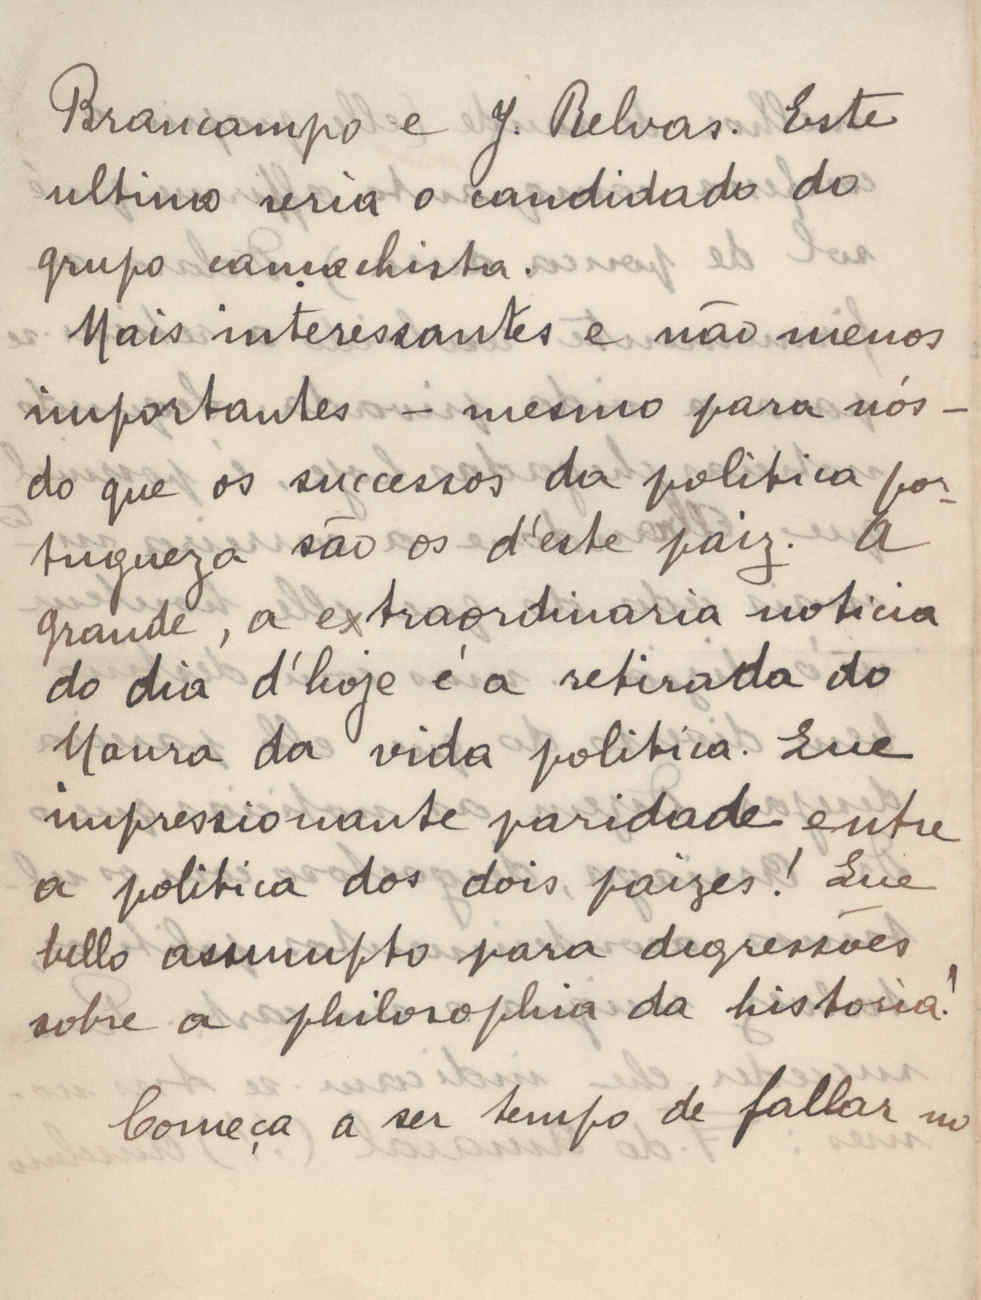 Brancampo e J. Relvas. Este
ultimo seria o candidado do
grupo camachista.
Mais interessantes e não menos
importantes – mesmo para nós –
do que os successos da politica por-
tugueza são os d'este paiz. A
grande, a extraordinaria noticia
do dia d'hoje é a retirada do
Maura da vida politica. Que
impressionante paridade entre
a politica dos dois paizes! Que
bello assumpto para digressões
sobre a philosophia da historia!
Começa a ser tempo de fallar no